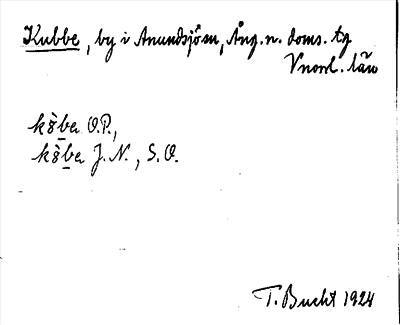 Kubbe, by i Anundsjö sn, Ång. n. doms. tg
Vnorrl. län
ks̀ba O.P.,
ks̀ba J.N., S.O.
T. Bucht 1924